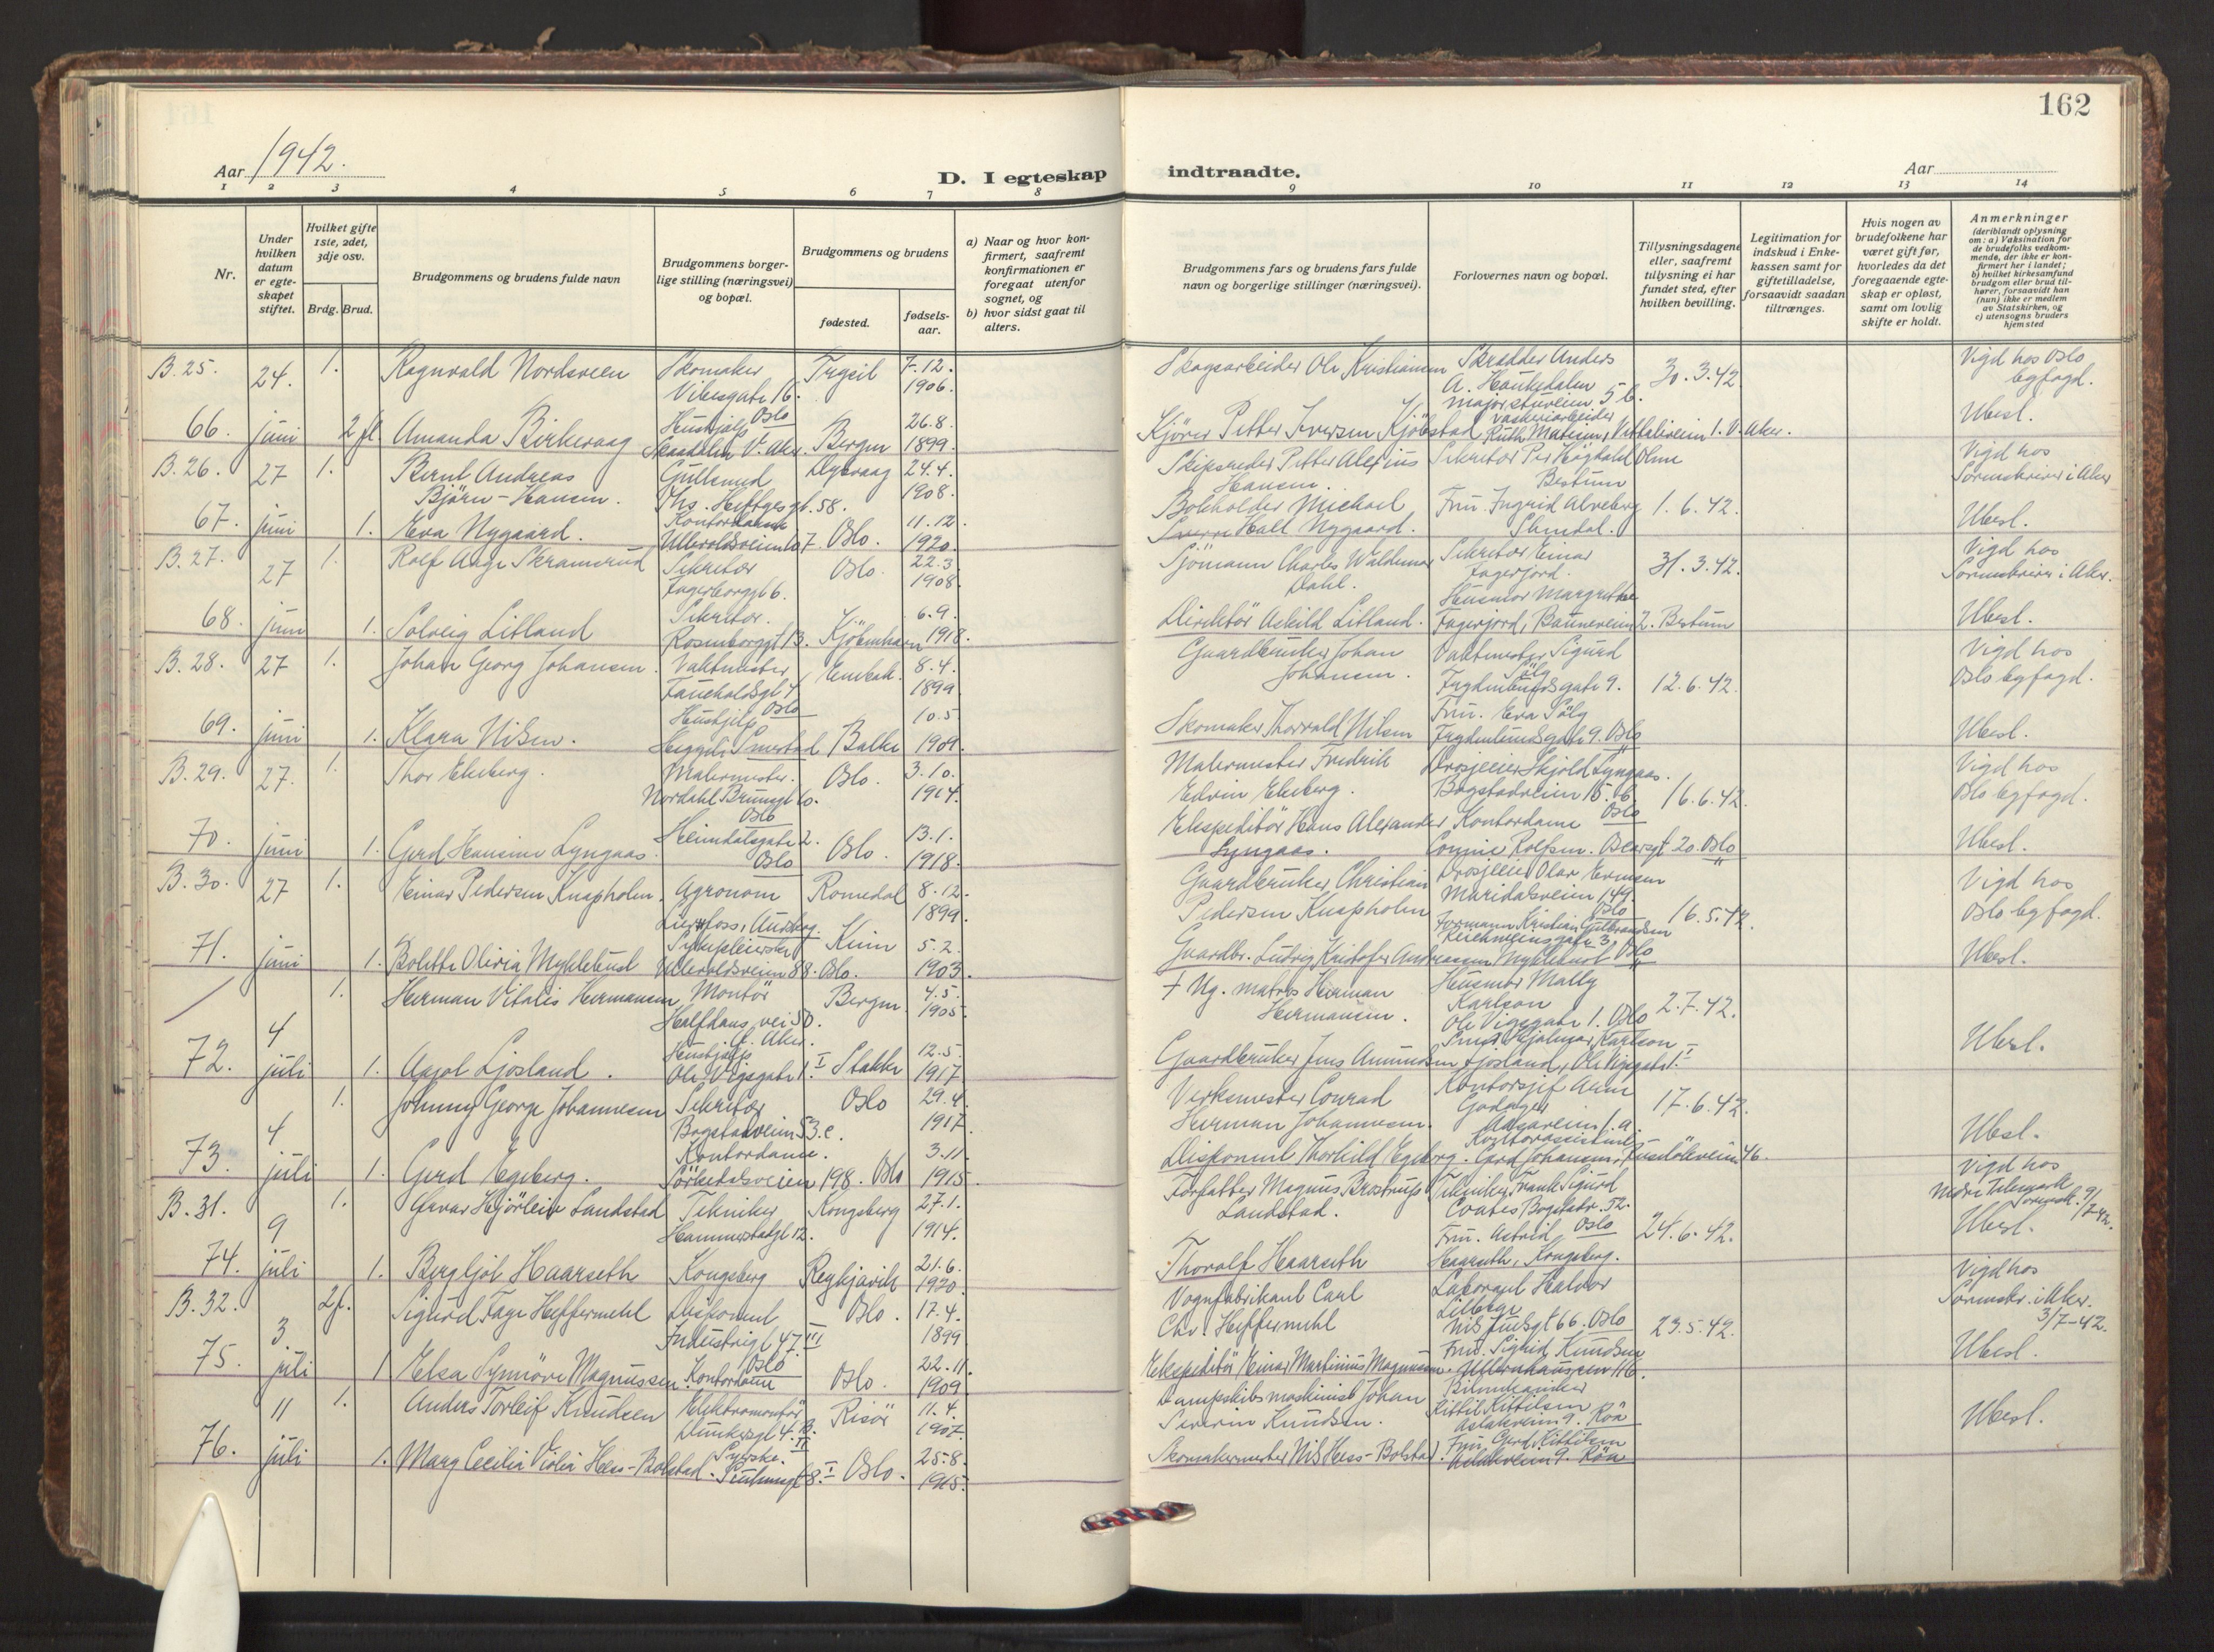 162
Aar 1942.
D. I egteskap indtraadte.
Aar
1 2 3 4 5 6 7 8 9 10 11 12 13 14
Nr.
Under hvilken datum er egteskapet stiftet.
Hvilket gifte 1ste, 2det, 3dje osv.
Brdg. Brud.
Brudgommens og brudens fulde navn
Brudgommens borgerlige stilling (næringsvei) og bopæl.
Brudgommens og brudens
fødested.
fødselsaar.
a) Naar og hvor konfirmert, saafremt konfirmationen er foregaat utenfor sognet, og
b) hvor sidst gaat til alters.
Brudgommens fars og brudens fars fulde navn og borgerlige stillinger (næringsvei).
Forlovernes navn og bopæl.
Tillysningsdagene eller, saafremt tillysning ei har fundet sted, efter hvilken bevilling.
Legitimation for indskud i Enkekassen samt for giftetilladelse, forsaavidt saadan tiltrænges.
Hvis nogen av brudefolkene har været gift før, hvorledes da det foregaaende egteskap er opløst, samt om lovlig skifte er holdt.
Anmerkninger
(deriblandt oplysning om: a) Vaksination for de brudefolks vedkommende, der ikke er konfirmert her i landet; b) hvilket kirkesamfund brudgom eller brud tilhører, forsaavidt han (hun) ikke er medlem av Statskirken, og c) utensogns bruders hjemsted
B. 25. 24. 1. Ragnvald Nordsveen Skomaker Vibesgate 16. Oslo Trysil 7.12. 1906.
Skogsarbeider Ole Kristiansen Skrædder Anders A. Haukedalen Majorstuveien 5 b. 30.3.42. Vigd hos Oslo byfogd.
66. juni 2 fl. Amanda Birkevaag Hushjelp V. Aker. Bergen 26.8. 1899.
Kjører Petter Iversen Kjöbstad Ruth 1. V. Aker. Ubesl.
B. 26. 27 1. Bernt Andreas Björn-Hansen. Ths. Heftyesgt. 58. Dypvaag 24.4. 1908.
Skipsreder Petter Alexius Hansen. Sekretær Per Høgdahl Olsen Bestum Vigd hos Sorenskriver i Aker
67. juni 1. Eva Nygaard. Kontordame Ullevoldsveien 107. Oslo. 11.12. 1920.
Bokholder Michael Hall Nygaard. Fru. Ingrid Alveberg Slemdal. 1.6.42. Ubesl.
B. 27. 27 1. Rolf Aage Skramerud Sekretær Fagerborggt 6. Oslo. 22.3 1908.
Sjömann Charles Waldemar Dahl. Sekretær Einar Fagerjord. 31.3.42. Vigd hos Sorenskriver i Aker.
68. juni 1. Solveig Litland Sekretær. Rosenborggt 13. Kjöbenhavn 6.9. 1918.
Direktör Askild Litland. Husmor Margrethe Fagerjord, Bauneveien 2. Bestum Ubesl.
B. 28. 27 1. Johan Georg Johansen. Vaktmester Fauchaldsgt 4 Oslo Enebak. 8.4. 1899
Gaardbruker Johan Johansen. Vaktmester Sigurd Sølg Frydenlundsgate 9. 12.6.42. Vigd hos Oslo byfogd.
69. juni 1. Klara Nilsen. Hushjelp Heggeli Smestad Balke 10.5 1909.
Skomaker Thorvald Nilsen Fru. Eva Sølg Frydenlundsgate 9. Oslo Ubesl.
B. 29. 27. 1. Thor Ekeberg. Malermester. Nordahl Brunsgt 10. Oslo Oslo. 3.10. 1914.
Malermester Fredrik Edvin Ekeberg. Drosjeeier Skjold Lyngaas. Bogstadveien 15. b. Oslo 16.6.42. Vigd hos Oslo byfogd.
70. juni 1. Gerd Hansine Lyngaas. Heimdalsgate 2. Oslo Oslo. 13.1. 1918.
Ekspeditör Hans Alexander Lyngaas. Kontordame Connie Rolfsen. Oscarsgt 20. Oslo Ubesl.
B. 30. 27 1. Einar Pedersen Knapholen. Agronom Lierfoss, Aurskog. Romedal 8.12. 1899.
Gaardbruker Christian Pedersen Knapholen Drosjeeier Olav Evensen Maridalsveien 149. Oslo 16.5.42. Vigd hos Oslo byfogd.
71. juni 1. Bolette Olivia Myklebust Sykepleierske Ullevoldsveien 88. Oslo. Kinn 5.2. 1903.
Gaardbr. Ludvig Kristofer Andreassen Myklebust Formann Kristian Gulbrandsen Reichweinsgate 3 Oslo Ubesl.
1. Herman Vitalis Hermansen Montör Halfdans vei 50. V. Aker. Bergen. 4.5. 1905.
† Ng. matros Herman Hermansen. Husmor Mally Karlson Ole Vigsgate 1. Oslo 2.7.42.
72. 4 juli 1. Aagot Ljosland. Hushjelp Ole Vigsgate 1. I Stokke 12.5. 1917.
Gaardbruker Jens Amundsen Ljosland, Smed Hjalmar Karlson Ole Vigsgate 1. I Ubesl.
1. Johnny George Johannesen Sekretær Bogstadveien 53. c. Oslo 29.4. 1917.
Verksmester Conrad Herman Johannesen. Kontorsjef Arne Godager 1. a. 17.6.42.
73. 4 juli 1. Gerd Egeberg. Kontordame. Sörkedalsveien 198. Oslo 3.11. 1915.
Disponent Thorhild Egeberg. Kontorassistent Gerd Johansen, 46. Ubesl.
B. 31. 1. Gavar Hjörleiv Landstad Tekniker Hammerstadgt 12. Kongsberg 27.1. 1914.
Forfatter Magnus Brostrup Landstad. Tekniker Frank Sigurd Coates Bogstadv. 52. Oslo 24.6.42. Vigd hos Nedre Telemark sorenskr. 9/7-42.
74. 9 juli 1. Bergljot Haarseth Kongsberg Reykjavik 21.6. 1920.
Thorolf Haarseth Fru. Astrid Haarseth, Kongsberg. Ubesl.
B. 32. 2 f. Sigurd Fage Heffermehl Disponent Industrigt 47. III Oslo Oslo. 17.4. 1899
Vognfabrikant Carl Chr. Heffermehl Laborant Halvor Lilleby Nils Juelsgt 66. Oslo 23.5.42. Vigd hos Sorenskr. i Aker. 3/7-42.
75. 3. juli 1 Elsa Synnöve Magnussen. Kontordame Oslo. 22.11. 1909
Ekspeditör Einar Martinius Magnussen. Fru. Sigrid Knudsen Ullernchausseen 116. Ubesl.
1. Anders Torleif Knudsen Elektromontör Dunkersgt 4. B. II Risör 11.4. 1907.
Dampskibsmaskinist Johan Severin Knudsen. Bilmekaniker Kittil Kittilsen Aslakveien 9. Röa
76. 11 juli 1. Mary Cecilia Viola Hess-Bolstad. Syerske. 8. I Oslo. 25.8. 1915.
Skomakermester Nils Hess-Bolstad. Fru. Gerd Kittilsen Aslakveien 9. Röa Ubesl.